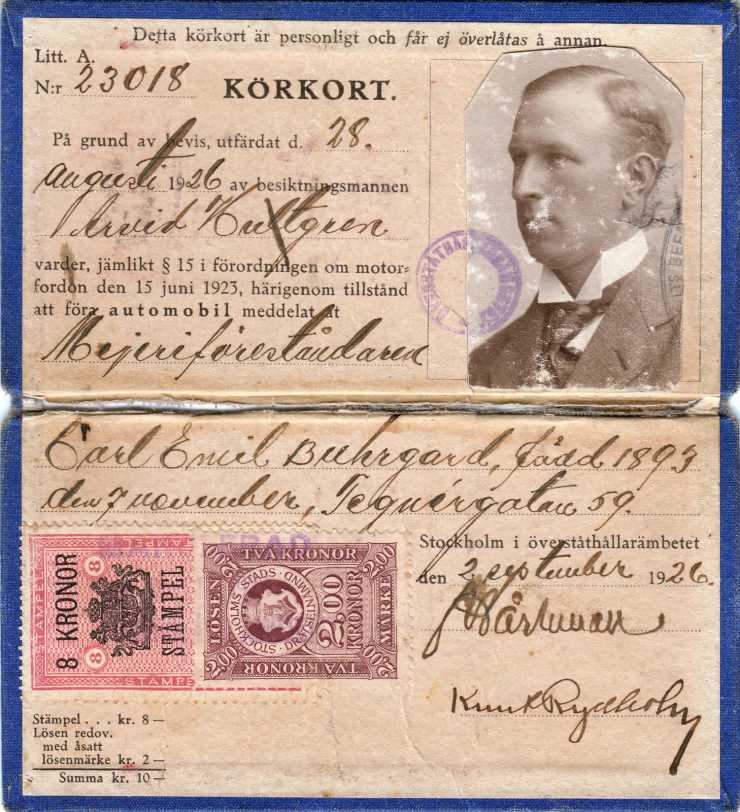 Detta körkort är personligt och får ej överlåtas å annan.
Litt. A.
N:r 23018
KÖRKORT.
På grund av bevis, utfärdat d. 28.
augusti 1926 av besiktningsmannen
Arvid Hultgren
varder, jämlikt § 15 i förordningen om motor-
fordon den 15 juni 1923, härigenom tillstånd
att föra automobil meddelat åt
Mejeriföreståndaren
Carl Emil Buhrgard, född 1893
den 7 november, Tegnérgatan 59.
Stockholm i överståthållarämbetet
den 2 september 1926.
Knut Rydholm
STÄMPEL
8 KRONOR
8
STÄMPEL
8
STÄMPEL
TVÅ KRONOR
LÖSEN
2,00
STOCKHOLMS STADS
DRÄTSELNÄMND
2,00
KRONOR
MÄRKE
TVÅ KRONOR
Stämpel . . . kr. 8 —
Lösen redov.
med åsatt
lösenmärke kr. 2 —
Summa kr. 10 —